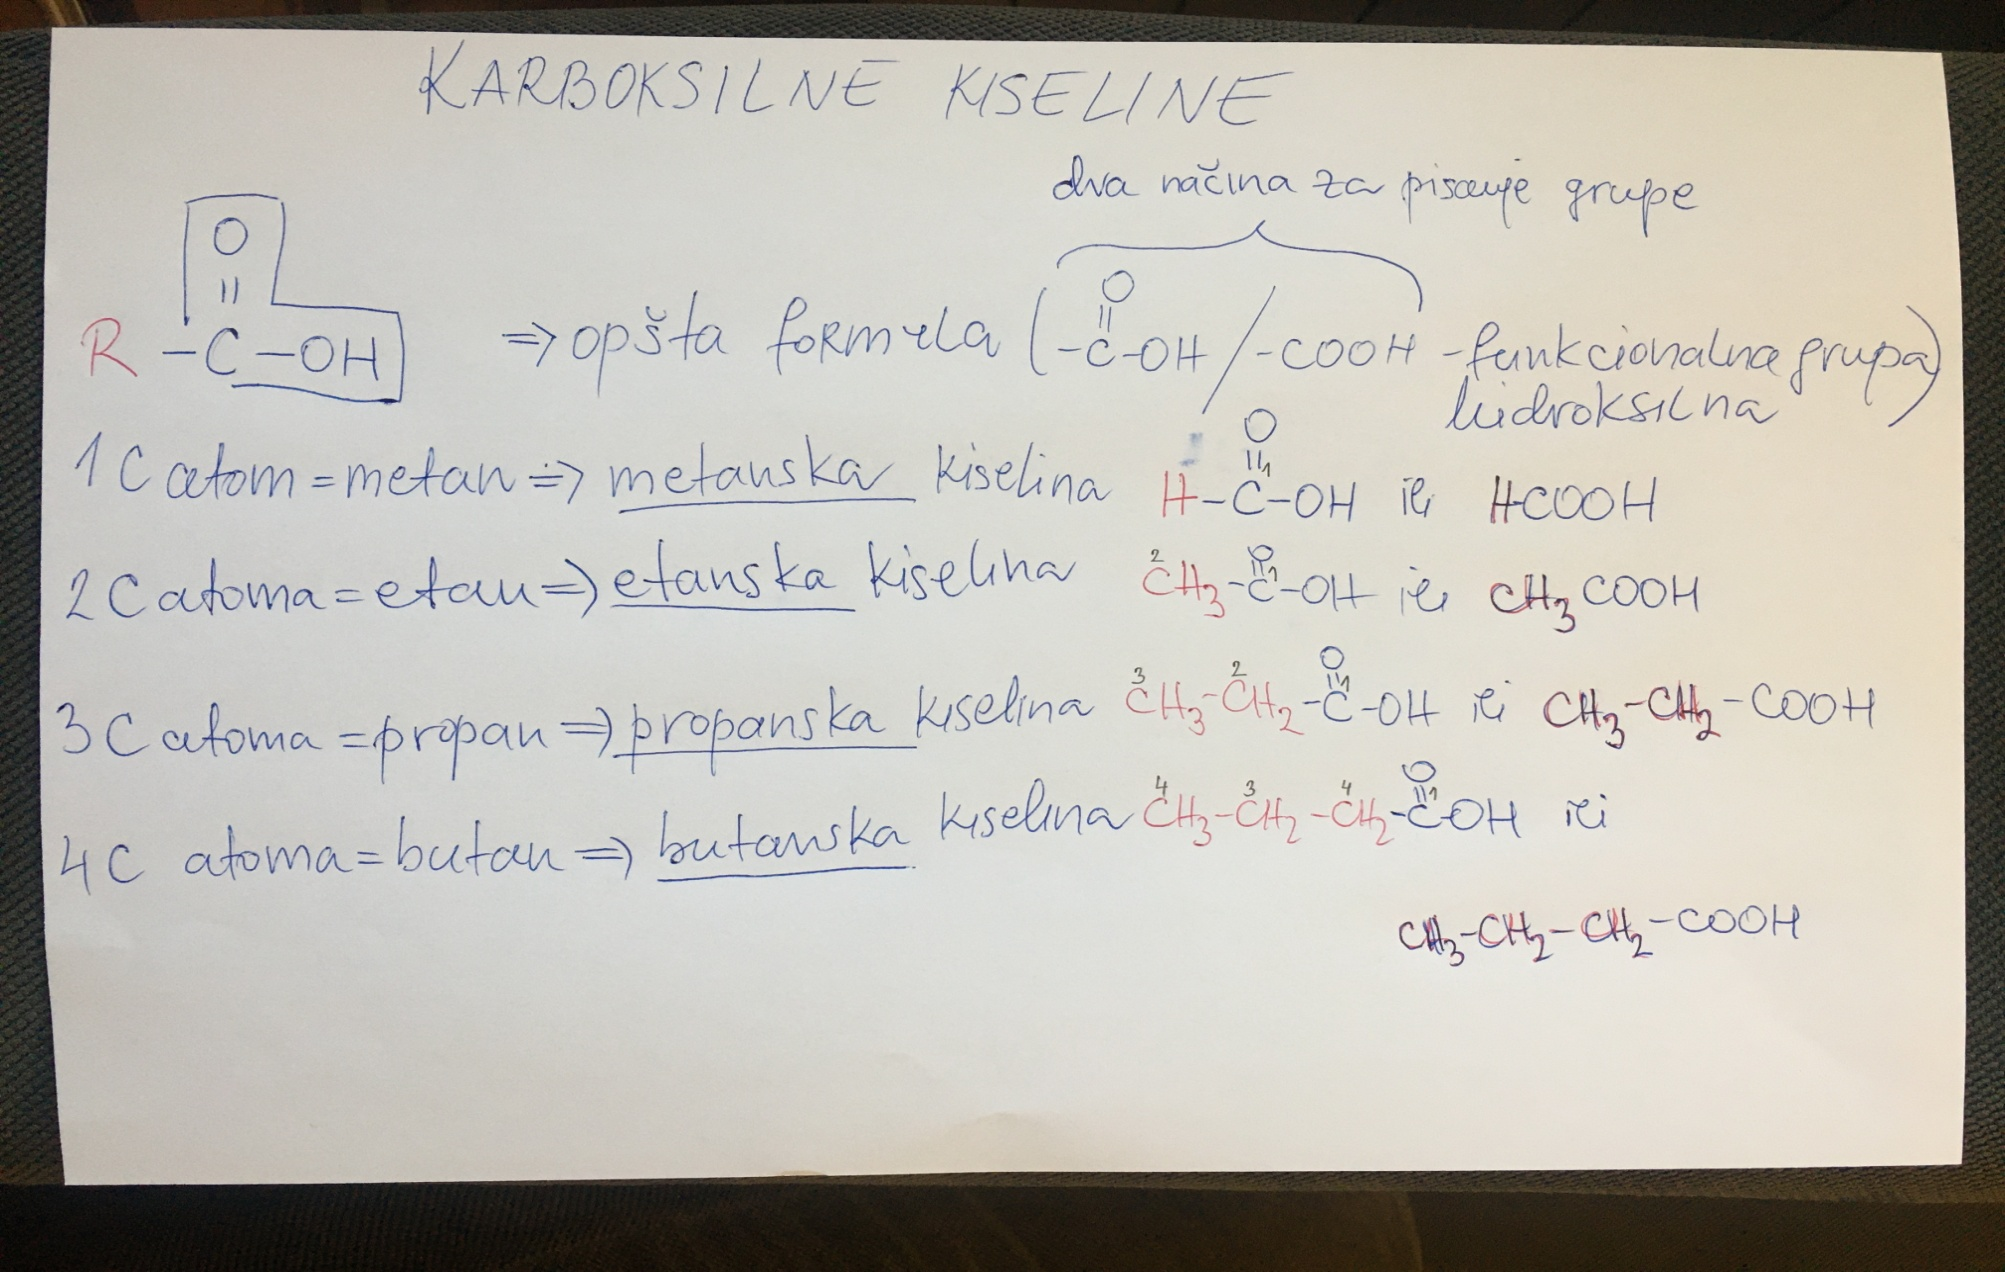 KARBOKSILNE KISELINE
dva načina za pisanje grupe
O
||
R –C–OH ⇒ opšta formula (–C–OH / –COOH –funkcionalna grupa)
O
||
hidroksilna
1 C atom = metan ⇒ metanska kiselina H–C–OH ili HCOOH
O
|| 1
2 C atoma = etan ⇒ etanska kiselina CH3–C–OH ili CH3COOH
2 O
|| 1
3 C atoma = propan ⇒ propanska kiselina CH3–CH2–C–OH ili CH3–CH2–COOH
3 2 O
|| 1
4 C atoma = butan ⇒ butanska kiselina CH3–CH2–CH2–COH ili
4 3 4 O
|| 1
CH3–CH2–CH2–COOH